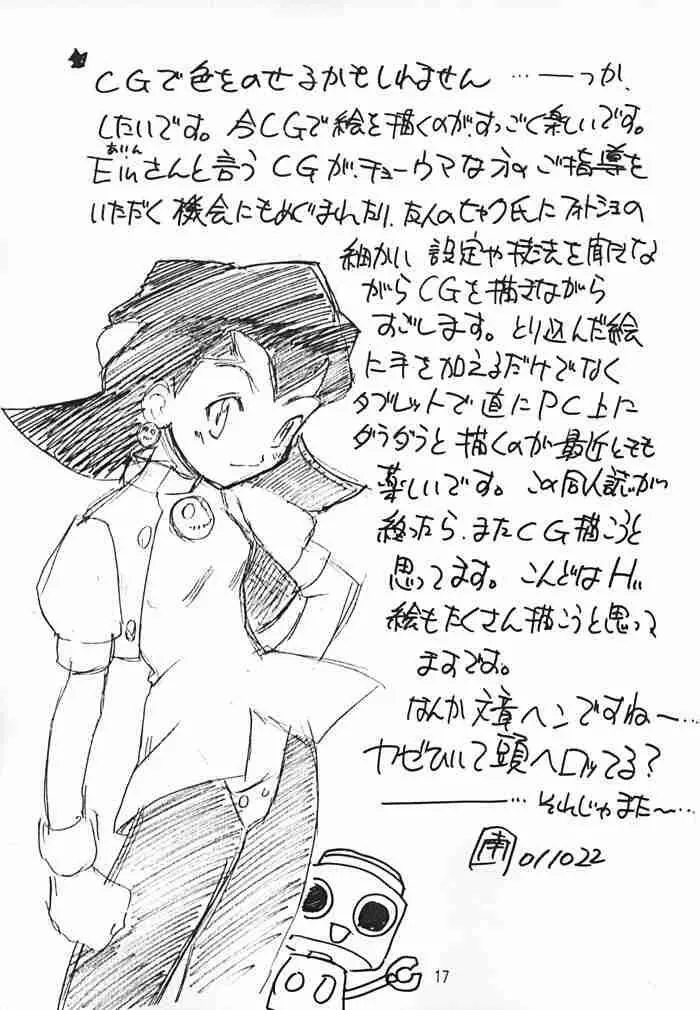 CGで色をのせるかもしれません …ーっか、
したいです。今CGで絵を描くのが、すっごく楽しいです。
あいん
Einさんと言う CGが、チョーウマな方の ご指導を
いただく 機会にもめぐまれたり、友人のセャク氏にフォトショの
細かい 設定や技法を聞きな
がらCGを描きながら
すごします。とり込んだ絵
に手を加えるだけでなく
タブレットで直にPC上に
ダラダラと描くのが最近とても
楽しいです。この同人誌が
終ったら、またCG描こうと
思ってます。こんどはH
絵もたくさん描こうと思って
ますです。
なんか文章ヘンですねー…
カゼひいて頭ヘロってる？
…それじゃまた〜…
南 011022
17